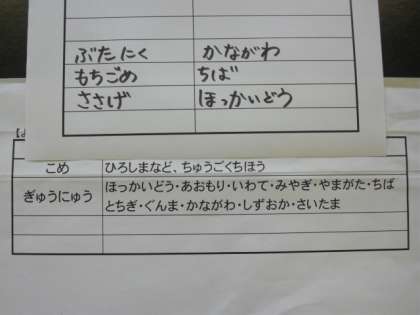 ぶたにく かながわ
もちごめ ちば
ささげ ほっかいどう
こめ ひろしまなど、ちゅうごくちほう
ぎゅうにゅう ほっかいどう・あおもり・いわて・みやぎ・やまがた・ちば
とちぎ・ぐんま・かながわ・しずおか・さいたま